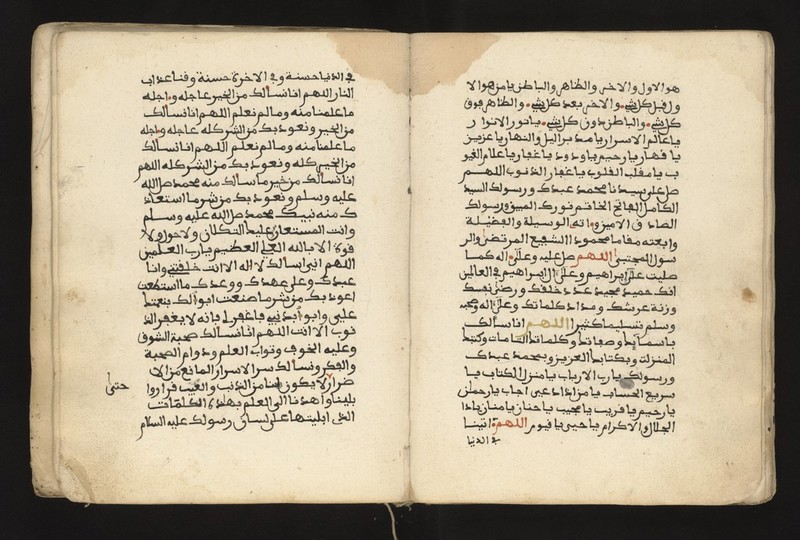 هو الاول والاخر والظاهر والباطن يا من هو الا
ول قبل كل شيء والاخر بعد كل شيء والظاهر فوق
كل شيء والباطن دون كل شيء يا نور الانوار
يا عالم الاسرار يا مدبر اليل والنهار يا عزيز
يا قهار يا رحيم يا ودود يا غفار يا علام الغيو
ب يا مقلب القلوب يا غفار الذنوب اللهم
صل على سيدنا محمد عبدك ورسولك السيد
الكامل الفاتح الخاتم نورك المبين ورسولك
الصادق الامين واته الوسيلة والفضيلة
وابعثه مقاما محمودا الشفيع المرتضى والر
سول المجتبى اللهم صل عليه وعلى اله كما
صليت على ابراهيم وعلى ال ابراهيم في العالمين
انك حميد مجيد عدد خلقك ورضى نفسك
وزنة عرشك ومداد كلماتك وعلى اله وصحبه
وسلم تسليما كثيرا اللهم انا نسالك
باسمائك وصفاتك وكلماتك التامات وكتبك
المنزلة وبكتابك العزيز وبمحمد عبدك
ورسولك يا رب الارباب يا منزل الكتاب يا
سريع الحساب يا من اذا دعي اجاب يا رحمان
يا رحيم يا قريب يا مجيب يا حنان يا منان يا ذا
الجلال والاكرام يا حي يا قيوم اللهم اتنا
في الدنيا
في الدنيا حسنة وفي الاخرة حسنة وقنا عذاب
النار اللهم انا نسالك من الخير عاجله واجله
ما علمنا منه وما لم نعلم اللهم انا نسالك
من الخير ونعوذ بك من الشر كله عاجله واجله
ما علمنا منه وما لم نعلم اللهم انا نسالك
من الخير كله ونعوذ بك من الشر كله اللهم
انا نسالك من خير ما سالك منه محمد صلى الله
عليه وسلم ونعوذ بك من شر ما استعاذ
ك منه نبيك محمد صلى الله عليه وسلم
وانت المستعان وعليك التكلان ولا حول ولا
قوة الا بالله العلي العظيم يا رب العلمين
اللهم اني اسالك لا اله الا انت خلقتني وانا
عبدك وعلى عهدك ووعدك ما استطعت
اعوذ بك من شر ما صنعت ابوء لك بنعمتك
علي وابوء بذنبي فاغفر لي فانه لا يغفر الذ
نوب الا انت اللهم انا نسالك صحبة الشوف
وعليه الخوف وثواب العلم ودوام الصحبة
والفكر ونسالك سر الاسرار المانع من الا
ضرار لا يكون لنا من الذنب والعيب قرار و
حتى
بلينا واهدنا الى العلم بهذه الكلمات
التي ابليتها على لسان رسولك عليه السلام